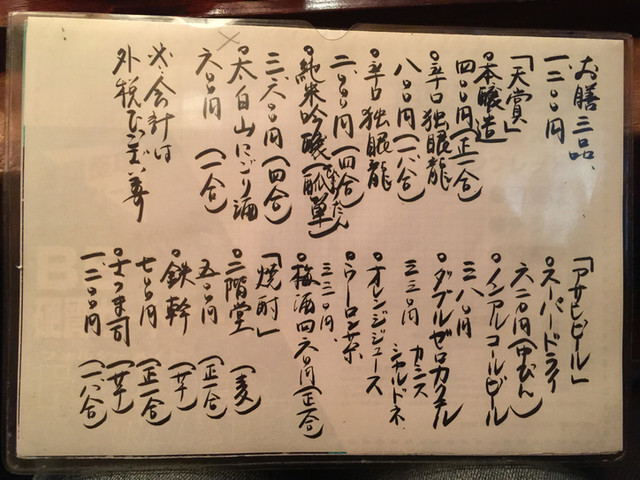 お膳三品、
一、二〇〇円
「天賞」
○本醸造
四〇〇円(正一合)
○辛口独眼龍
八〇〇円(一、八合)
○辛口独眼龍
二、〇〇〇円(四合)
○純米吟醸(瓢箪)
三、六〇〇円(四合)
○太白山にごり酒
六〇〇円(一合)
お会計は
外税
「アサヒビール」
○スーパードライ
六二〇円(中びん)
○ノンアルコールビール
三八〇円
○ダブルゼロカクテル
三三〇円 カシス
シャルドネ
○オレンジジュース
○ウーロン茶
三三〇円、
○梅酒四六〇円(正一合)
「焼酎」
○二階堂(麦)
五〇〇円(正一合)
○鉄幹(芋)
七〇〇円(正一合)
○さつま司(芋)
一、二〇〇円(一、八合)